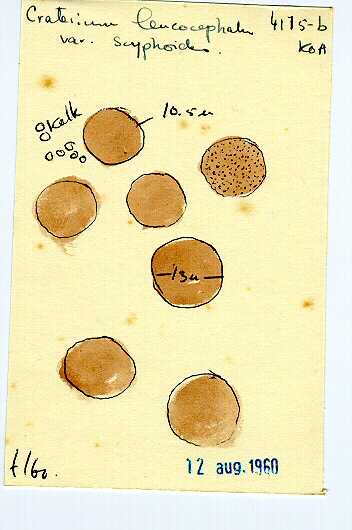 Craterium leucocephalum 4175-b
var. scyphoides. KOA
10.5 u
gkalk
13 u
f/60.
12 aug. 1960